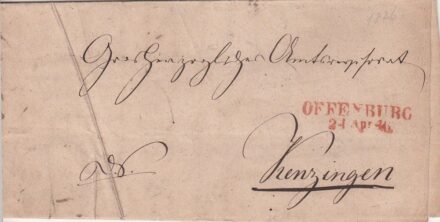 1846
Grosherzogliches Amtsrevisorat
OFFENBURG
24 Apr 46
d. S.
Kenzingen